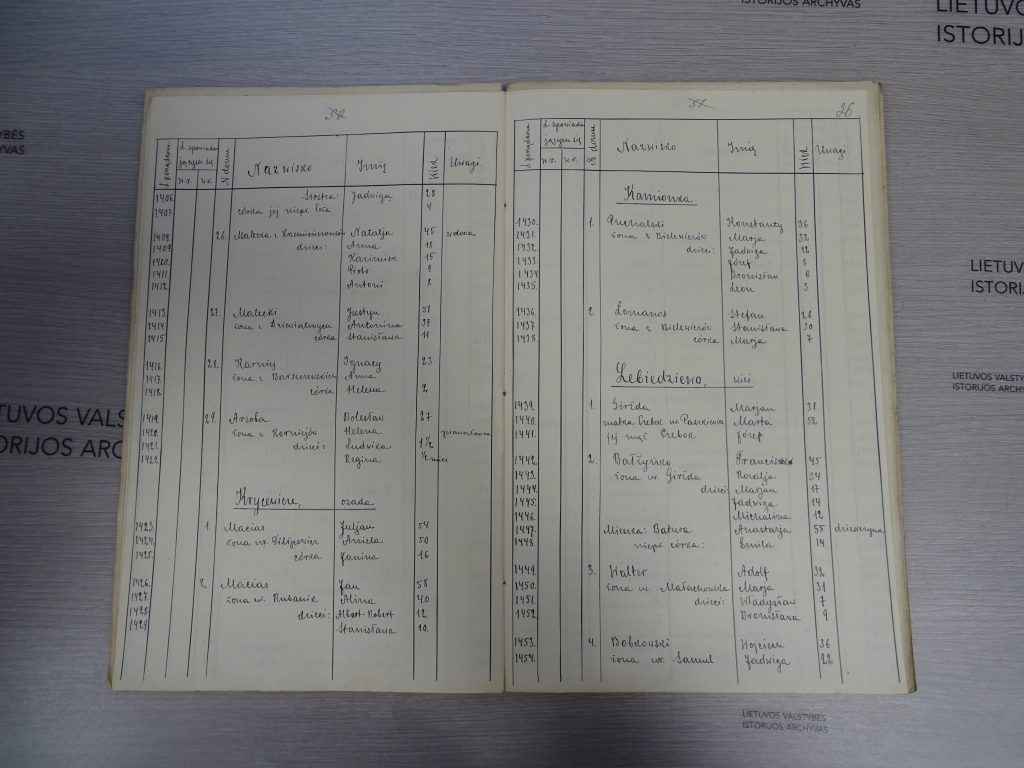 LIETUVOS VALSTYBĖS
ISTORIJOS ARCHYVAS
37
L. porządkowa
u spowiedzi
są
w r.
w r.
№ domu
Nazwisko
Imię
Wiek
Uwagi.
1406. Siostra: Jadwiga 28
1407. córka jej niepr. 4
1408. 26. Małecka z Natalja 45 wdowa
1409. dzieci: Anna 18
1410. Kazimierz 15
1411. Piotr 9
1412. Antoni 8
1413. 27. Małecki Justyn 58
1414. żona z Antonina 37
1415. córka Stanisława 11
1416. 28. Karniej Ignacy 23
1417. żona z Barszczewskich Anna
1418. córka Helena 2
1419. 29. Arzoba Bolesław 27
1420. żona z Korniejów Helena
1421. dzieci: Ludwika 1½
1422. Regina
Krycewicze, osada
1423. 1. Macias Juljan 54
1424. żona w. Filipowicz Aniela 50
1425. córka Janina 16
1426. 2. Macias Jan 58
1427. żona w. Rubanik Alina 40
1428. dzieci: Albert-Robert 12
1429. Stanisława 10.
37
26
№ domu
Nazwisko
Imię
Wiek
Uwagi.
Kamionka
1430. 1. Puchalski Konstanty 36
1431. żona z Bielewiczów Marja 32
1432. dzieci: Jadwiga 12
1433. Józef 8
1434. Bronisław 6
1435. Leon 3
1436. 2. Łomanos Stefan 26
1437. żona z Bielewiczów Stanisława 30
1438. córka Marja 7
Łebiedziewo, wieś.
1439. 1. Girłda Marjan 31
1440. matka Czebok w. Marta 52
1441. jej mąż Czebok Józef
1442. 2. Bałtyńko Franciszek 45
1443. żona w. Girłda Rozalja 34
1444. dzieci: Marjan 17
1445. Jadwiga 14
1446. Michalina 12
1447. Mieszka: Batura Anastazja 55 dziewczyna
1448. niepr. córka: Emila 14
1449. 3. Walter Adolf 32
1450. żona w. Małachowska Marja 31
1451. dzieci: Władysław 7
1452. Bronisława 9
1453. 4. Bobkowski Wojciech 36
1454. żona w. Samul Jadwiga 22
LIETUVOS VALSTYBĖS
ISTORIJOS ARCHYVAS
LIETUVOS VALSTYBĖS
ISTORIJOS ARCHYVAS